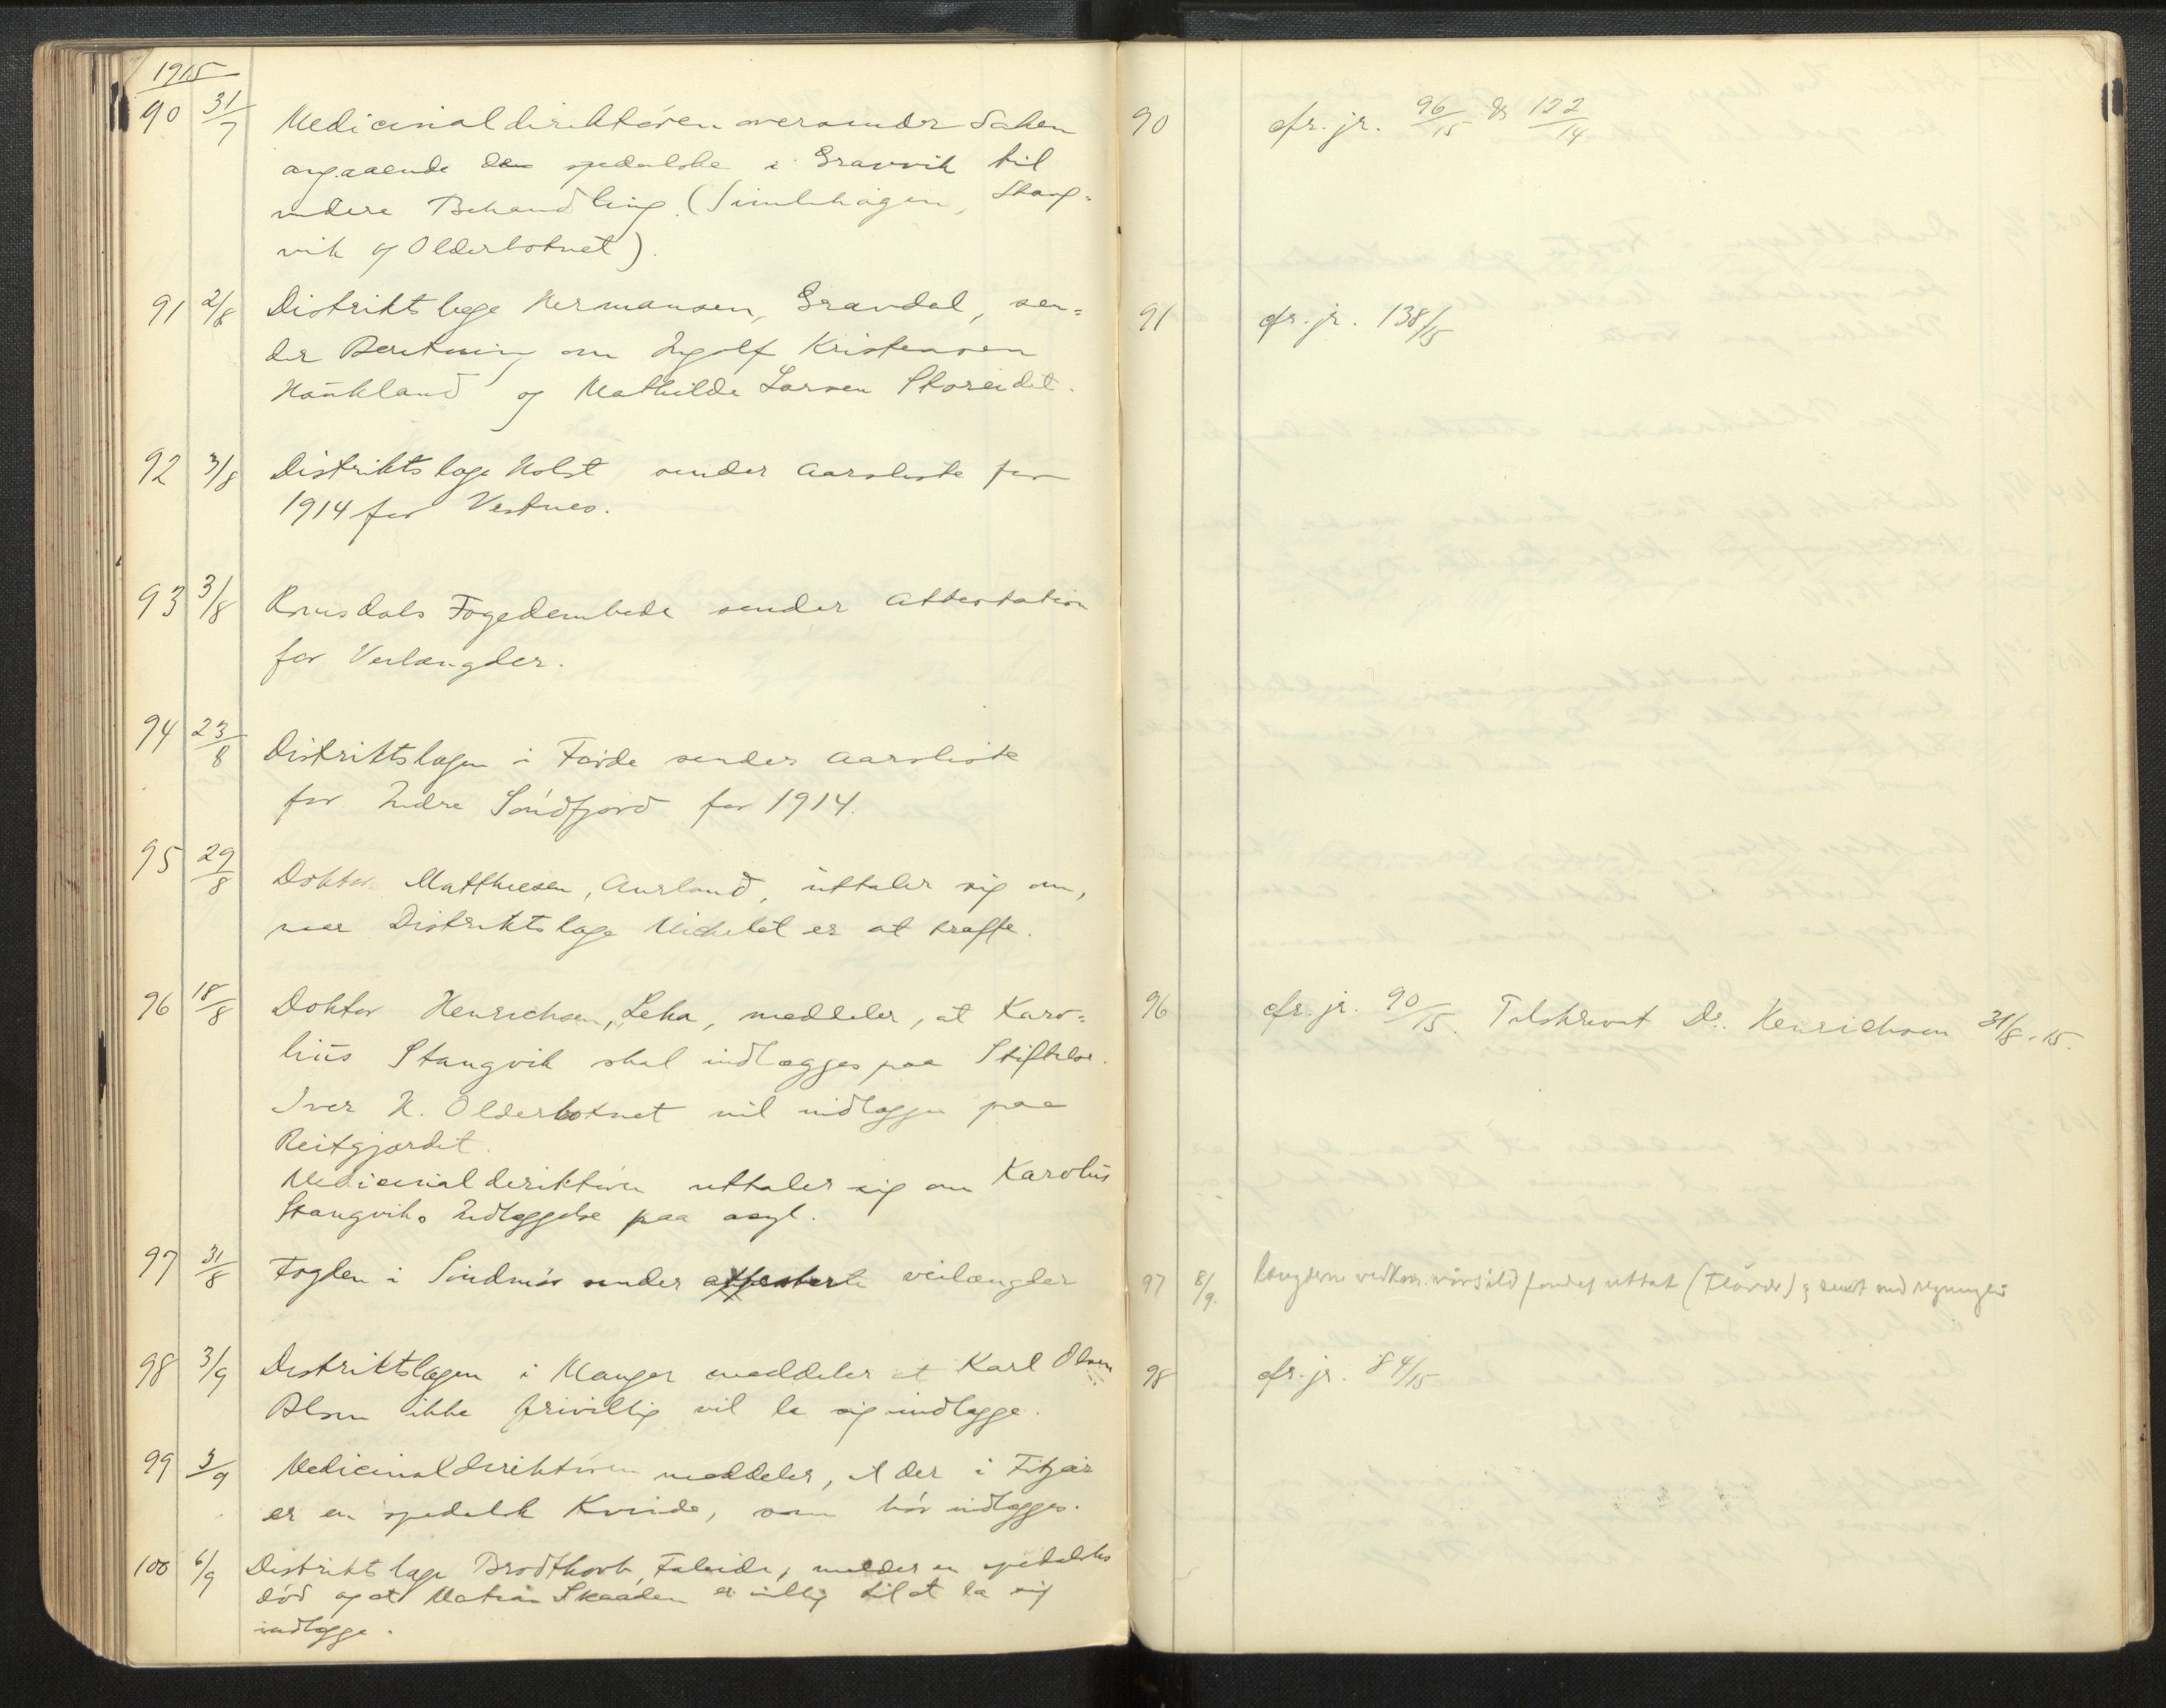 1915
90 31/7 Medicinaldirektøren oversender Saken
angaaende den spedalske i Gravvik til
videre Behandling. (Simlehagen, Stang=
vik og Olderbotnet).
91 2/8 Distriktslæge Hermansen, Gravdal, sen=
der Beretning om Ingolf Kristensen
Haukland og Mathilde Larsen Storeidet.
92 3/8 Distriktslæge Holst sender Aarsliste for
1914 for Vestnes.
93 3/8 Romsdals Fogedembede sender Attestation
for Veilængder.
94 23/8 Distriktslægen i Førde sender Aarsliste
for Indre Søndfjord for 1914.
95 29/8 Doktor Matthiesen, Aurland, uttaler sig om,
naar Distriktslæge Michelet er at træffe.
96 18/8 Doktor Henrichsen, Leka, meddeler, at Karo=
lius Stangvik skal indlægges paa Stiftelse.
Iver H. Olderbotnet vil indlægges paa
Reitgjærdet.
Medicinaldirektøren uttaler sig om Karolius
Stangviks Indlæggelse paa asyl.
97 31/8 Fogden i Søndmør sender attesterte veilængder
98 3/9 Distriktslægen i Manger meddeler at Karl Olsen
ikke frivillig vil la sig indlægge.
99 3/9 Medicinaldirektøren meddeler, at der i Fitjar
er en spedalsk Kvinde, som bør indlægges.
100 6/9 Distriktslæge Brodtkorb, Faleide, melder en spedalsks
død og at Skaaden er villig til at la sig
indlægge.
90 cfr. jr. 96/15 & 122/14
91 cfr. jr. 138/15
96 cfr. jr. 90/15. Tilskrevet Dr. Henrichsen 31/8-15.
97 8/9. Længderne vedkom. uttat &
98 cfr. jr. 84/15